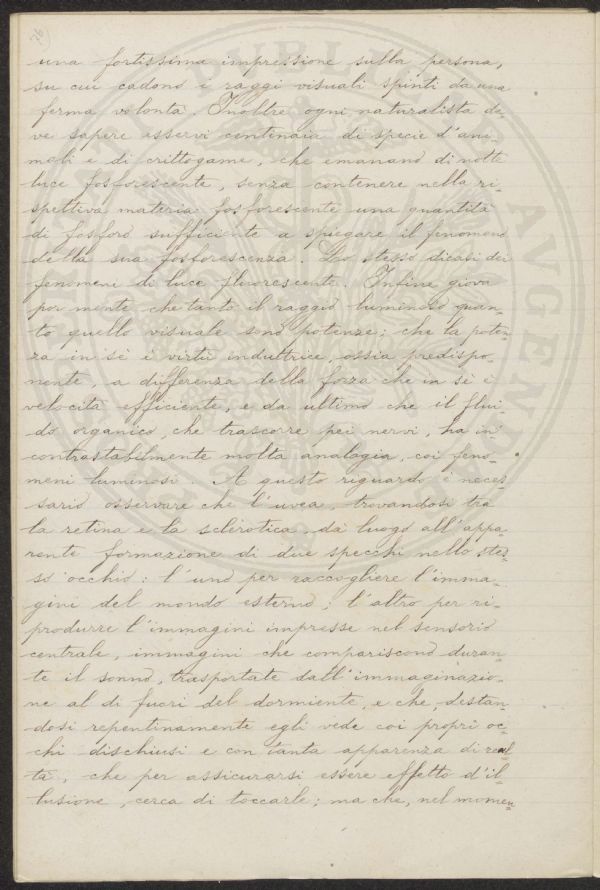 76
una fortissima impressione sulla persona,
su cui cadono i raggi visuali spinti da una
ferma volontà. Inoltre ogni naturalista de-
ve sapere esservi centinaia di specie d'ani-
mali e di crittogame, che emanano di notte
luce fosforescente, senza contenere nella ri-
spettiva materia fosforescente una quantità
di fosforo sufficiente a spiegare il fenomeno
della sua fosforescenza. Lo stesso dicasi dei
fenomeni di luce fluorescente. Infine giova
por mente che tanto il raggio luminoso quan-
to quello visuale sono potenze; che la poten-
za in sè è virtù induttrice, ossia predispo-
nente, a differenza della forza che in sè è
velocità efficiente, e da ultimo che il flui-
do organico, che trascorre pei nervi, ha in-
contrastabilmente molta analogia coi feno-
meni luminosi. A questo riguardo è neces-
sario osservare che l'uvea, trovandosi tra
la retina e la sclerotica, dà luogo all'appa-
rente formazione di due specchi nello stes-
so occhio: l'uno per raccogliere l'imma-
gini del mondo esterno; l'altro per ri-
produrre l'immagini impresse nel sensorio
centrale, immagini che compariscono duran-
te il sonno, trasportate dall'immaginazio-
ne al di fuori del dormiente, e che, destan-
dosi repentinamente egli vede coi proprî oc-
chi dischiusi e con tanta apparenza di real-
tà, che per assicurarsi essere effetto d'il-
lusione, cerca di toccarle; ma che, nel momen-